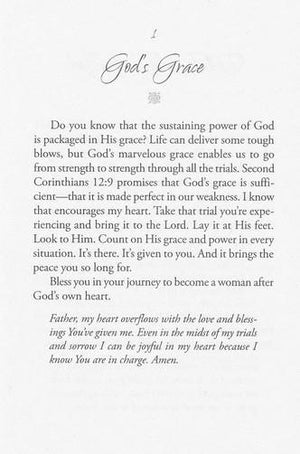 1
God's Grace
Do you know that the sustaining power of God
is packaged in His grace? Life can deliver some tough
blows, but God's marvelous grace enables us to go
from strength to strength through all the trials. Second
Corinthians 12:9 promises that God's grace is suffi-
cient—that it is made perfect in our weakness. I know
that encourages my heart. Take that trial you're expe-
riencing and bring it to the Lord. Lay it at His feet.
Look to Him. Count on His grace and power in every
situation. It's there. It's given to you. And it brings the
peace you so long for.
Bless you in your journey to become a woman after
God's own heart.
Father, my heart overflows with the love and bless-
ings You've given me. Even in the midst of my trials
and sorrow I can be joyful in my heart because I
know You are in charge. Amen.